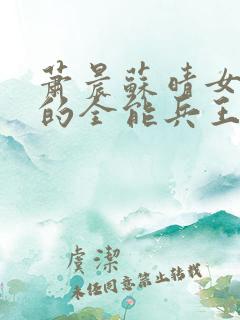 蕭晨蘇晴女
的全能兵王
虞潔
未経同意禁止转载